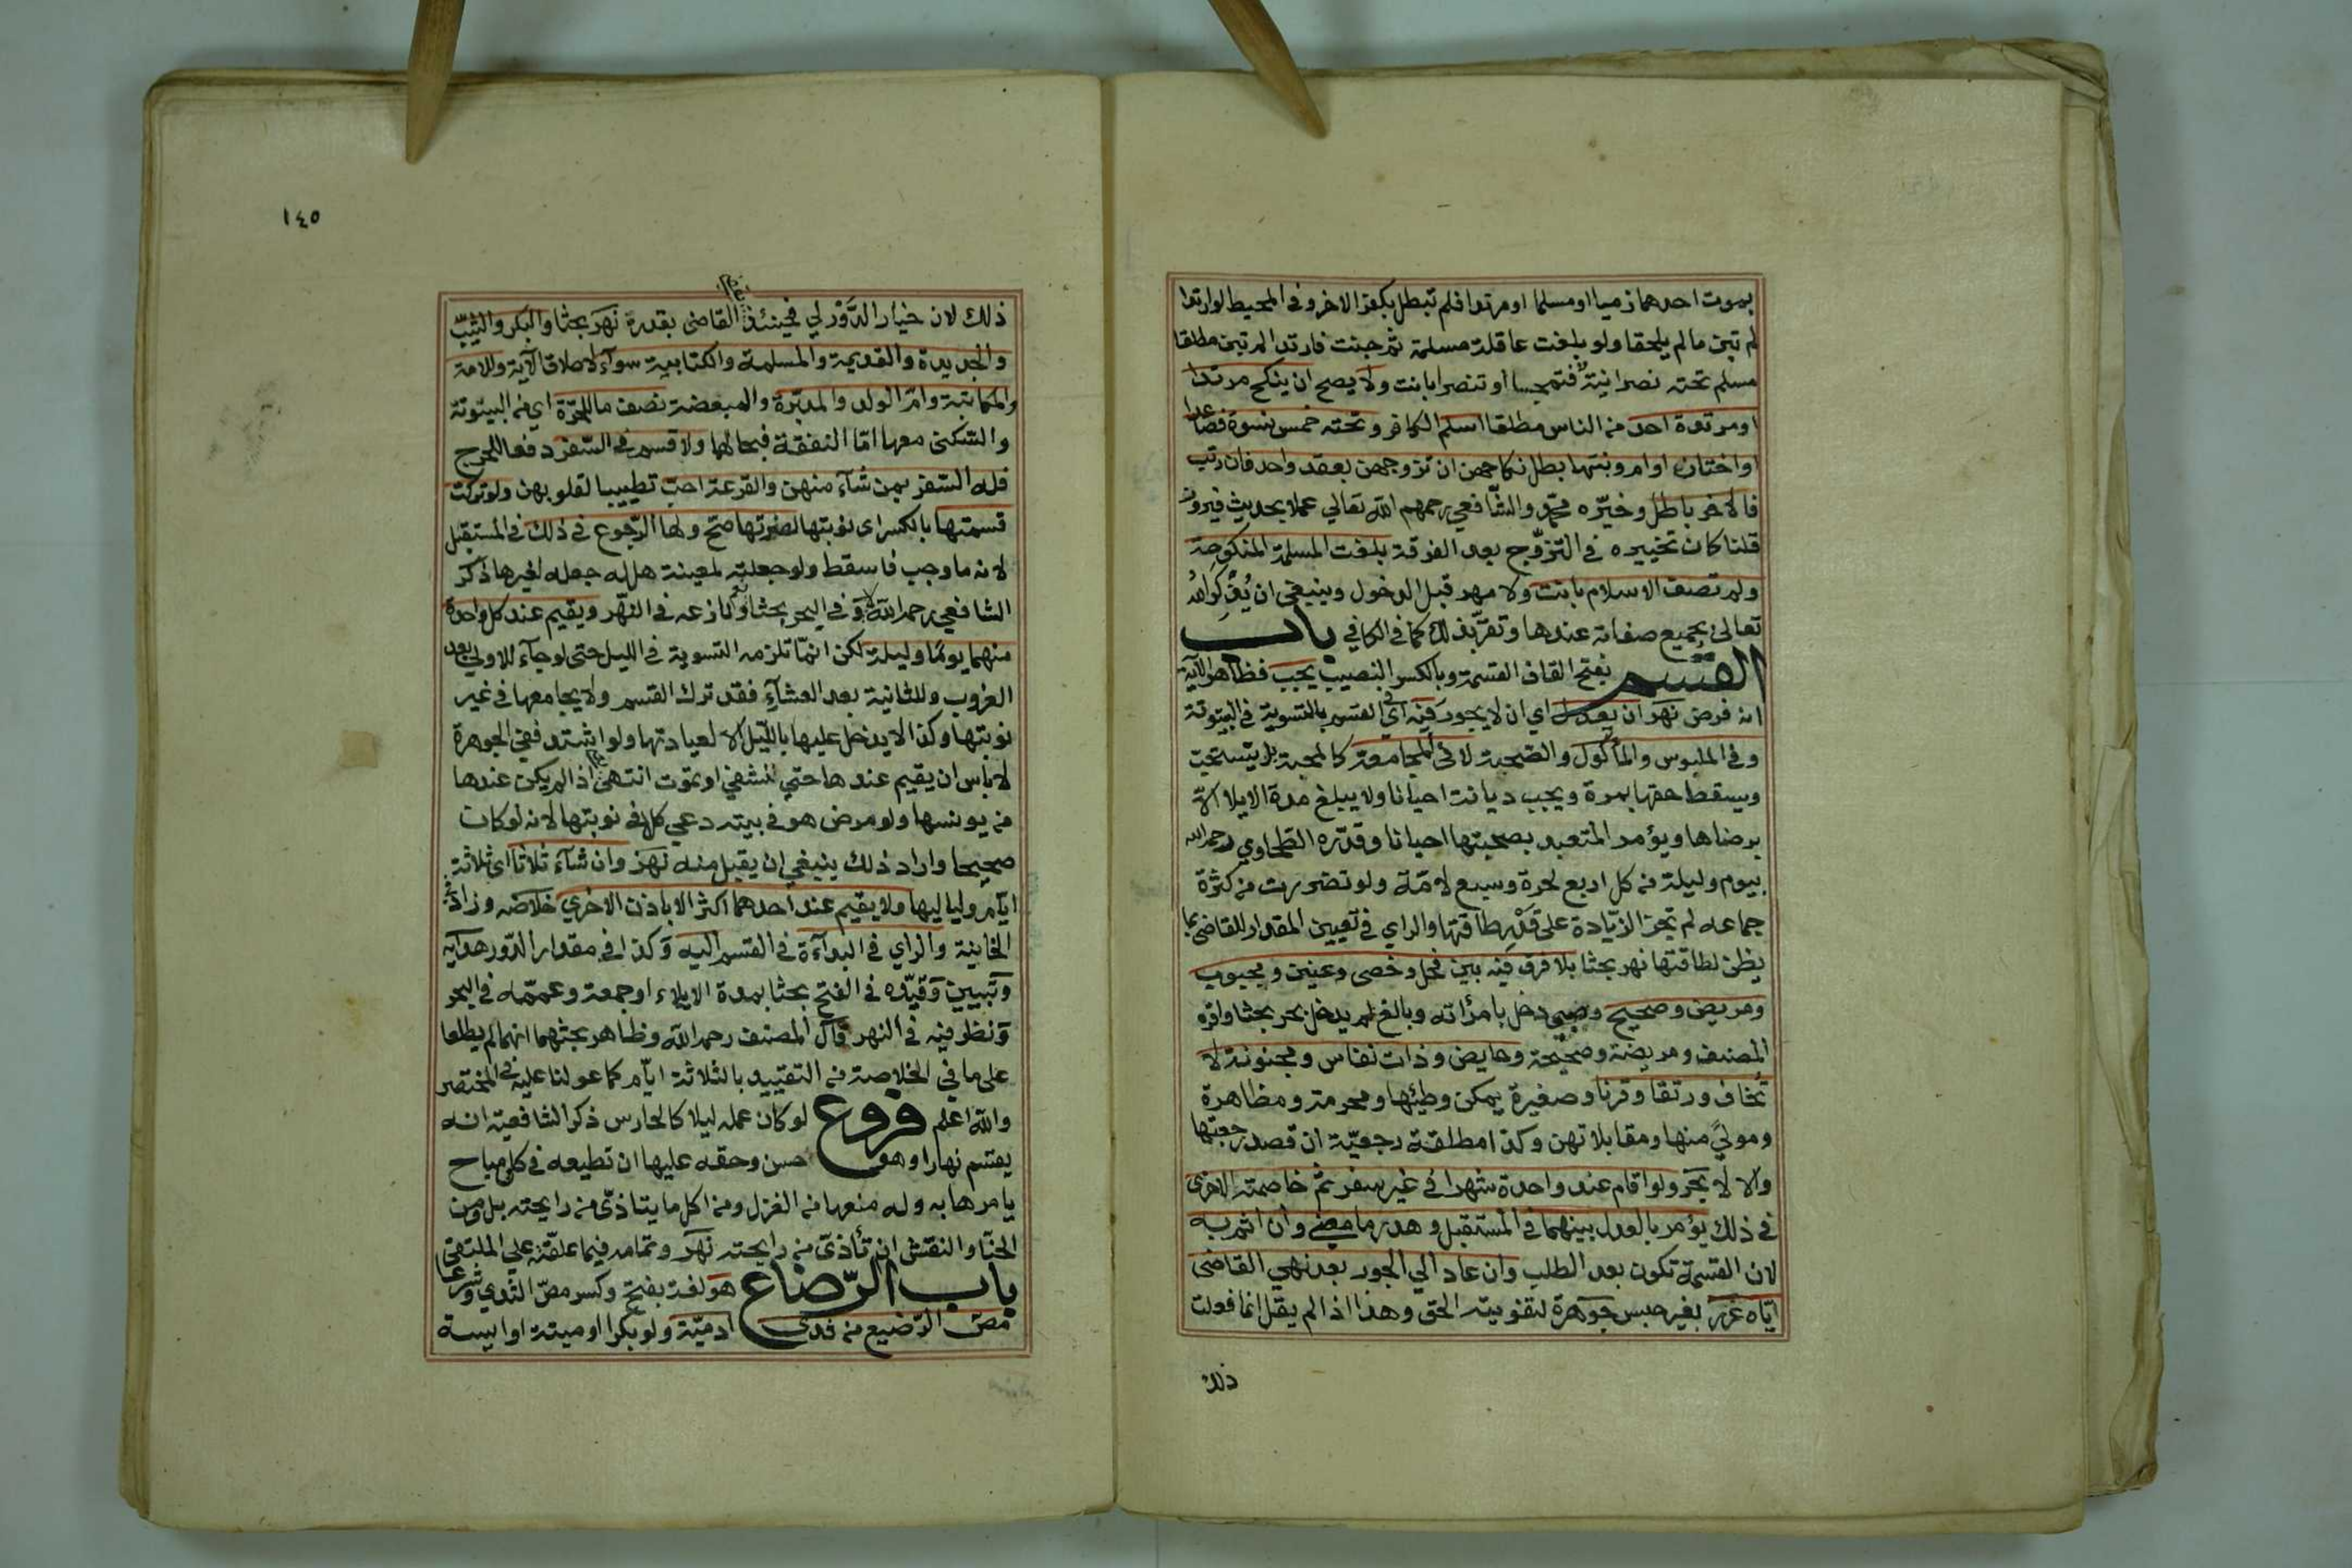 بموت احدهما ذميا او مسلما او مرتدا فلم تبطل بكفر الاخر وفي المحيط لو ارتدا
لم تبن مالم يلحقا ولو بلغت عاقلة مسلمة ثم جنت فارتدا لم تبن مطلقا
مسلم تحته نصرانية فتمجسا او تنصرا بانت ولا يصح ان ينكح مرتدا
او مرتدة احد من الناس مطلقا اسلم الكافر وتحته خمس نسوة فصاعدا
او اختان او ام وبنتها بطل نكاحهن ان تزوجهن بعقد واحد فان رتب
فالاخر باطل وخيّره محمّد والشّافعي رحمهم الله تعالي عملا بحديث فيروز
قلنا كان تخييره في التزوّج بعد الفرقة بلغت المسلمة المنكوحة
ولم تصف الاسلام بانت ولا مهر قبل الدخول وينبغي ان يُذكر الله
تعالى بجميع صفاته عندها وتقرّ بذلك كما في الكافي باب
القسم بفتح القاف القسمة وبالكسر النصيب يجب فظاهر الآية
انه فرض نهر ان يعدل اي ان لا يجور فيه اي في القسم بالتسوية في البيتوتة
وفي الملبوس والمأكول والصحبة لا في المجامعة كالمحبة بل يستحب
ويسقط حقها بمرة ويجب ديانة احيانا ولا يبلغ مدة الايلا الا
برضاها ويؤمر المتعبد بصحبتها احيانا وقدّره الطحاوي رحمه الله
بيوم وليلة من كل اربع لحرة وسبع لامّة ولو تضررت من كثرة
جماعه لم تجز الزّيادة على قدر طاقتها والراي في تعيين المقدار للقاضي بما
يظن لطاقتها نهر بحثا بلا فرق فيه بين فحل وخصي وعنين ومجبوب
ومريض وصحيح وصبي دخل بامرأته وبالغ لم يدخل بحر بحثا واقره
المصنف ومريضة وصحيحة وحايض وذات نفاس ومجنونة لا
تخاف ورتقا وقرنا وصغيرة يمكن وطئها ومحرمة ومظاهرة
ومولي منها ومقابلاتهن وكذا مطلقة رجعيّة ان قصد رجعتها
والا لا بحر ولو اقام عند واحدة شهرا في غير سفر ثم خاصمته الاخرى
في ذلك يؤمر بالعدل بينهما في المستقبل وهدر ما مضي وان اثم به
لان القسمة تكون بعد الطلب وان عاد الي الجور بعد نهي القاضى
ايّاه عزر بغير حبس جوهرة لتفويته الحق وهذا اذا لم يقل انما فعلت
ذلك
١٤٥
ذلك لان خيار الدَّوْر لي فحينئذ القاضى بقدرهَ نهَر بحثا والبكر والثيّب
والجديدة والقديمة والمسلمة والكتابية سوآء لاطلاق الآية وللامة
والمكاتبة وامّ الولد والمدبّرة والمبعضة نصف ما للحرّة اي من البيتوتة
والسّكنى معها امّا النفقة فبحالها ولا قسم في السّفر دفعا للحرج
فله السّفر بمن شآء منهن والقرعة احبّ تطييبا لقلوبهن ولو تركت
قسمتها بالكسر اى نوبتها لضرتها صح ولها الرّجوع في ذلك في المستقبل
لانه ما وجب فما سقط ولو جعلته لمعينة هل له جعله لغيرها ذكر
الشافعي رحمه الله لا وفي البحر بحثا نعم ونازعه في النّهر ويقيم عند كل واحدة
منهما يوما وليلة لكن انمّا تلزمه التسوية في الليل حتى لو جآء للاولي بعد
الغروب وللثانية بعد العشآءِ فقد ترك القسم ولا يجامعها في غير
نوبتها وكذا لا يدخل عليها بالليّل الا لعيادتها ولو اشتد ففي الجوهرة
لا باس ان يقيم عندها حتى تشفي او تموت انتهي اذا لم يكن عندها
من يونسها ولو مرض هو في بيته دعي كل في نوبتها لانه لو كان
صحيحا واراد ذلك ينبغي ان يقبل منه نهَر وان شآء ثلاثا اى ثلاثة
ايّام ولياليها ولا يقيم عند احدهما اكثر الا باذن الاخري خلاصه وزاد في
الخانية والراي في البدآءة في القسم اليه وكذا في مقدار الدّور هدايه
وتبيين وقيّده في الفتح بحثا بمدة الايلاء او جمعة وعممّه في البحر
ونظر فيه في النهر قال المصنف رحمه الله وظاهر بحثهما انهما لم يطلعا
على ما في الخلاصة من التقييد بالثلاثة ايّام كما عولنا عليه في المختصر
والله اعلم فروع لو كان عمله ليلا كالحارس ذكر الشافعيّة انه
يقسم نهارا وهو حسن وحقه عليها ان تطيعه في كل مباح
يامرها به وله منعها من الغزل ومن اكل ما يتاذّى من رايحته بل ومن
الحنّا والنقش ان تأذى من رايحته نهَر وتمامه فيما علقّته علي الملتقي
باب الرّضاع هو لغة بفتح وكسر مصّ الثدي وشرعا
مصّ الرّضيع من ثدى ادميّة ولو بكرا او ميتة او آيسة